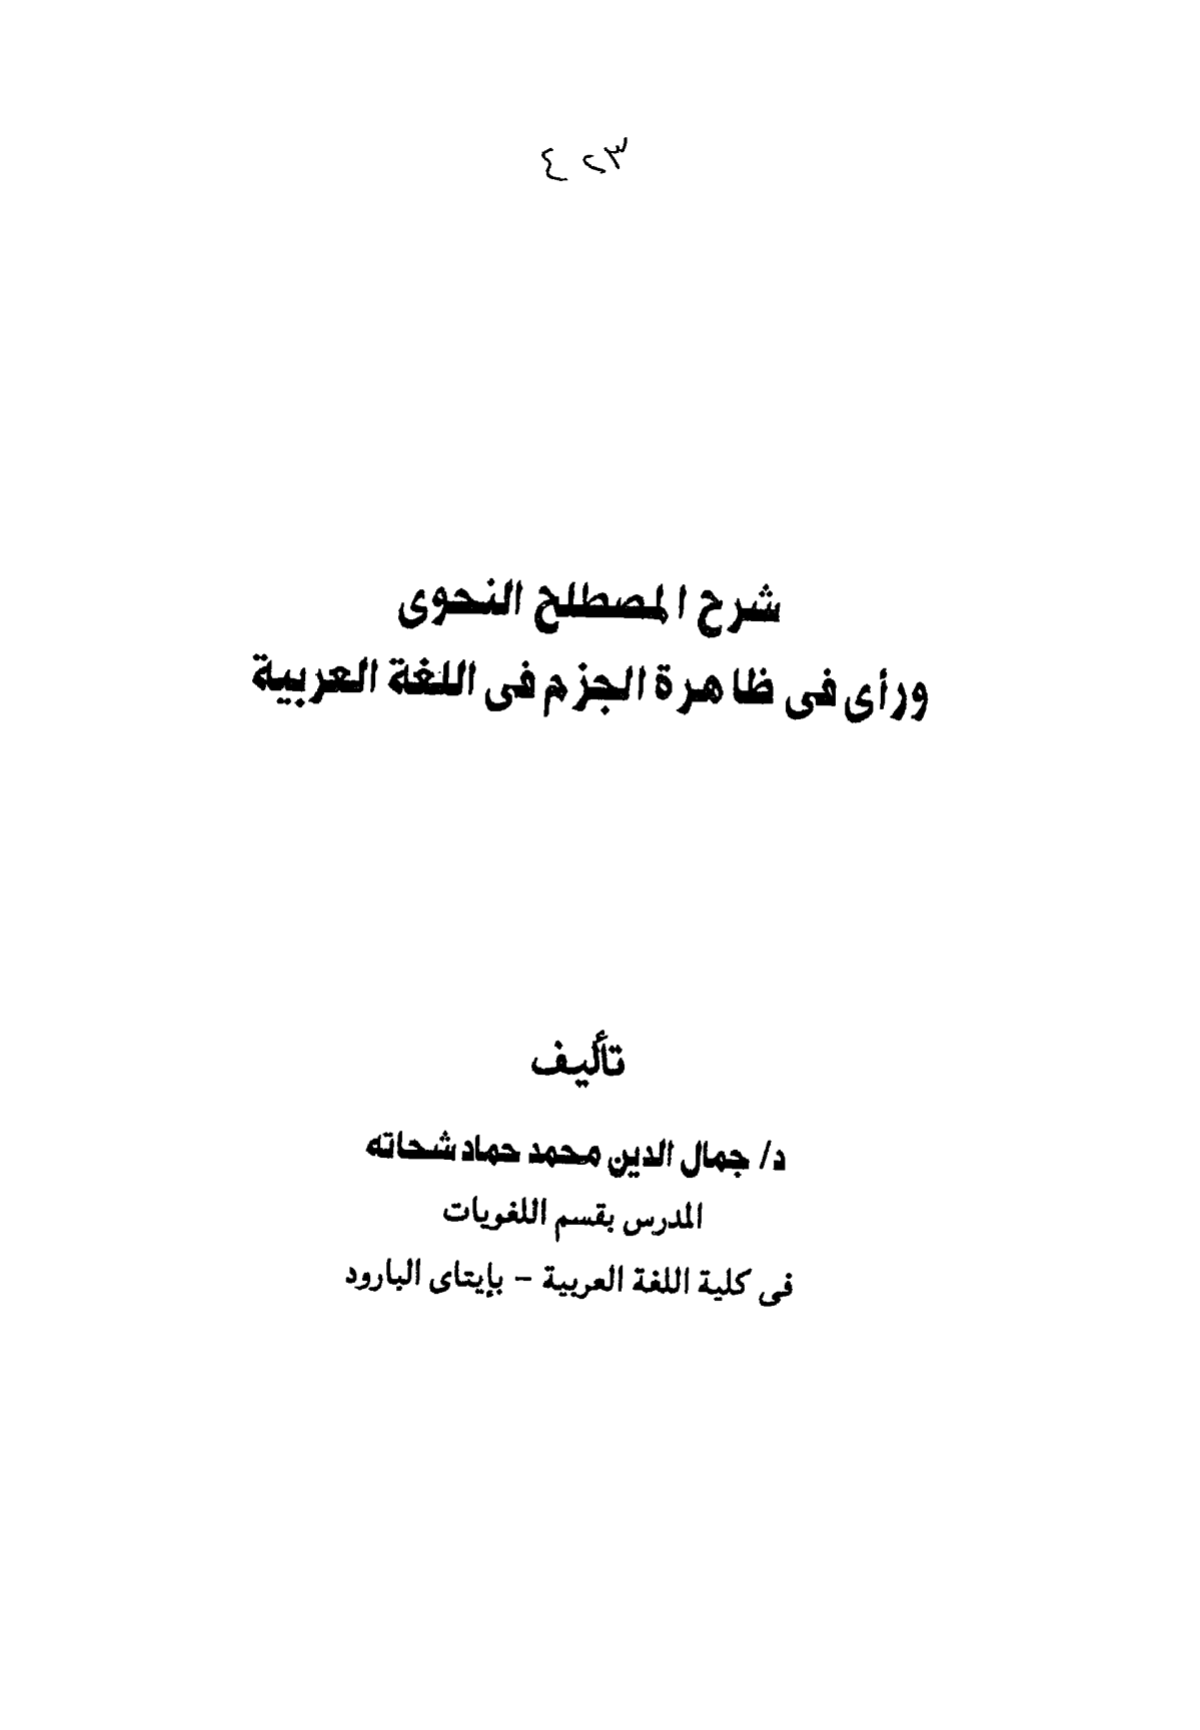 شرح المصطلح النحوى
ورأى فى ظاهرة الجزم فى اللغة العربية
تأليف
د/ جمال الدين محمد حماد شحاته
المدرس بقسم اللغويات
فى كلية اللغة العربية - بإيتاى البارود